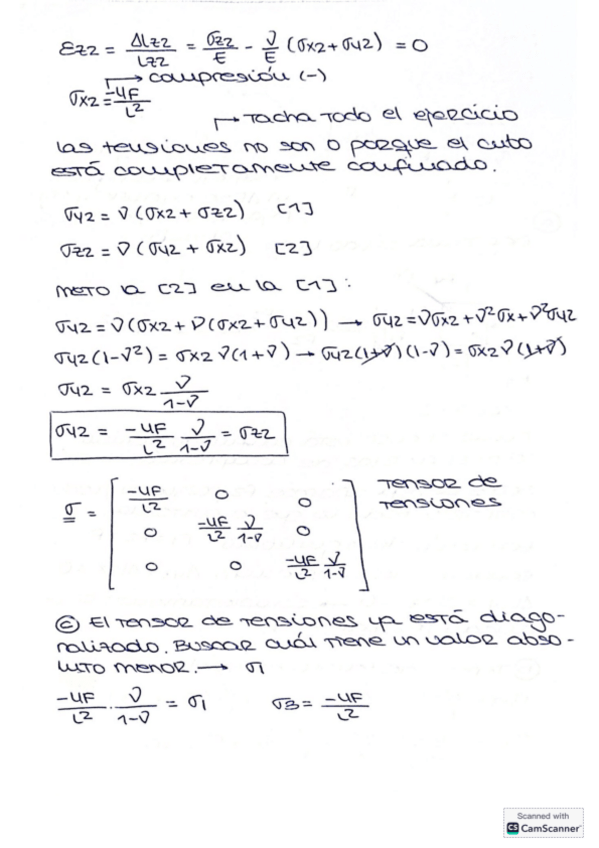 εz2 = ΔLz2/Lz2 = σz2/E - ν/E (σx2 + σy2) = 0
→ compresión (-)
σx2 = -4F/L²
→ Tacha todo el ejercicio
las tensiones no son 0 porque el cubo
está completamente confinado.
σy2 = ν (σx2 + σz2) [1]
σz2 = ν (σy2 + σx2) [2]
meto la [2] en la [1]:
σy2 = ν(σx2 + ν(σx2 + σy2)) → σy2 = νσx2 + ν²σx + ν²σy2
σy2 (1-ν²) = σx2 ν (1+ν) → σy2 (1+ν) (1-ν) = σx2 ν (1+ν)
σy2 = σx2 ν/1-ν
σy2 = -4F/L² ν/1-ν = σz2
σ = [ -4F/L² 0 0
0 -4F/L² ν/1-ν 0
0 0 -4F/L² ν/1-ν ]
Tensor de
tensiones
ⓒ El tensor de tensiones ya está diago-
nalizado. Buscar cuál tiene un valor abso-
luto menor. → σ1
-4F/L² · ν/1-ν = σ1 σ3 = -4F/L²
Scanned with
CS CamScanner